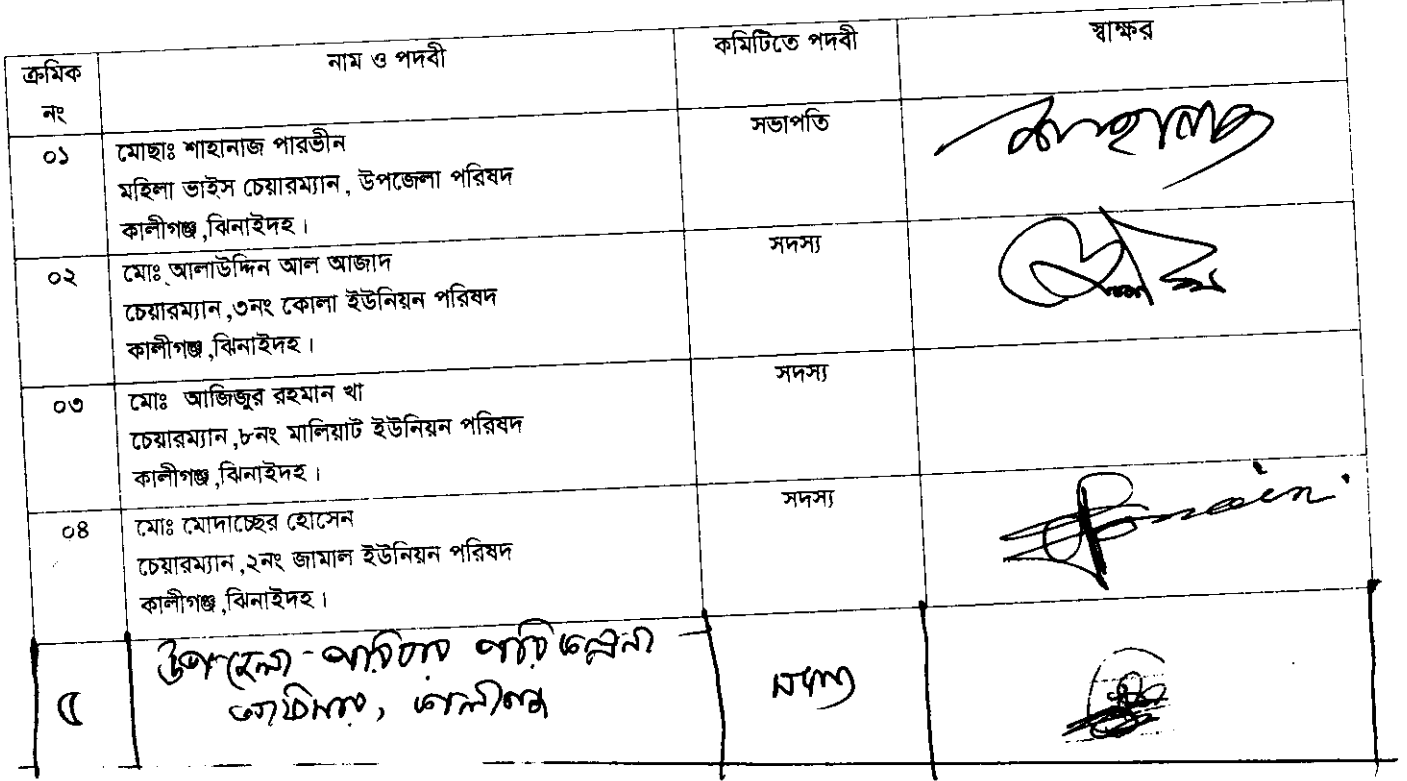 ক্রমিক নং নাম ও পদবী কমিটিতে পদবী স্বাক্ষর
০১ মোছাঃ শাহানাজ পারভীন সভাপতি
মহিলা ভাইস চেয়ারম্যান, উপজেলা পরিষদ
কালীগঞ্জ,ঝিনাইদহ।
০২ মোঃ আলাউদ্দিন আল আজাদ সদস্য
চেয়ারম্যান,৩নং কোলা ইউনিয়ন পরিষদ
কালীগঞ্জ,ঝিনাইদহ।
০৩ মোঃ আজিজুর রহমান খা সদস্য
চেয়ারম্যান,৮নং মালিয়াট ইউনিয়ন পরিষদ
কালীগঞ্জ,ঝিনাইদহ।
০৪ মোঃ মোদাচ্ছের হোসেন সদস্য
চেয়ারম্যান,২নং জামাল ইউনিয়ন পরিষদ
কালীগঞ্জ,ঝিনাইদহ।
৫ উপজেলা পরিবার পরিকল্পনা সদস্য
অফিসার, কালীগঞ্জ